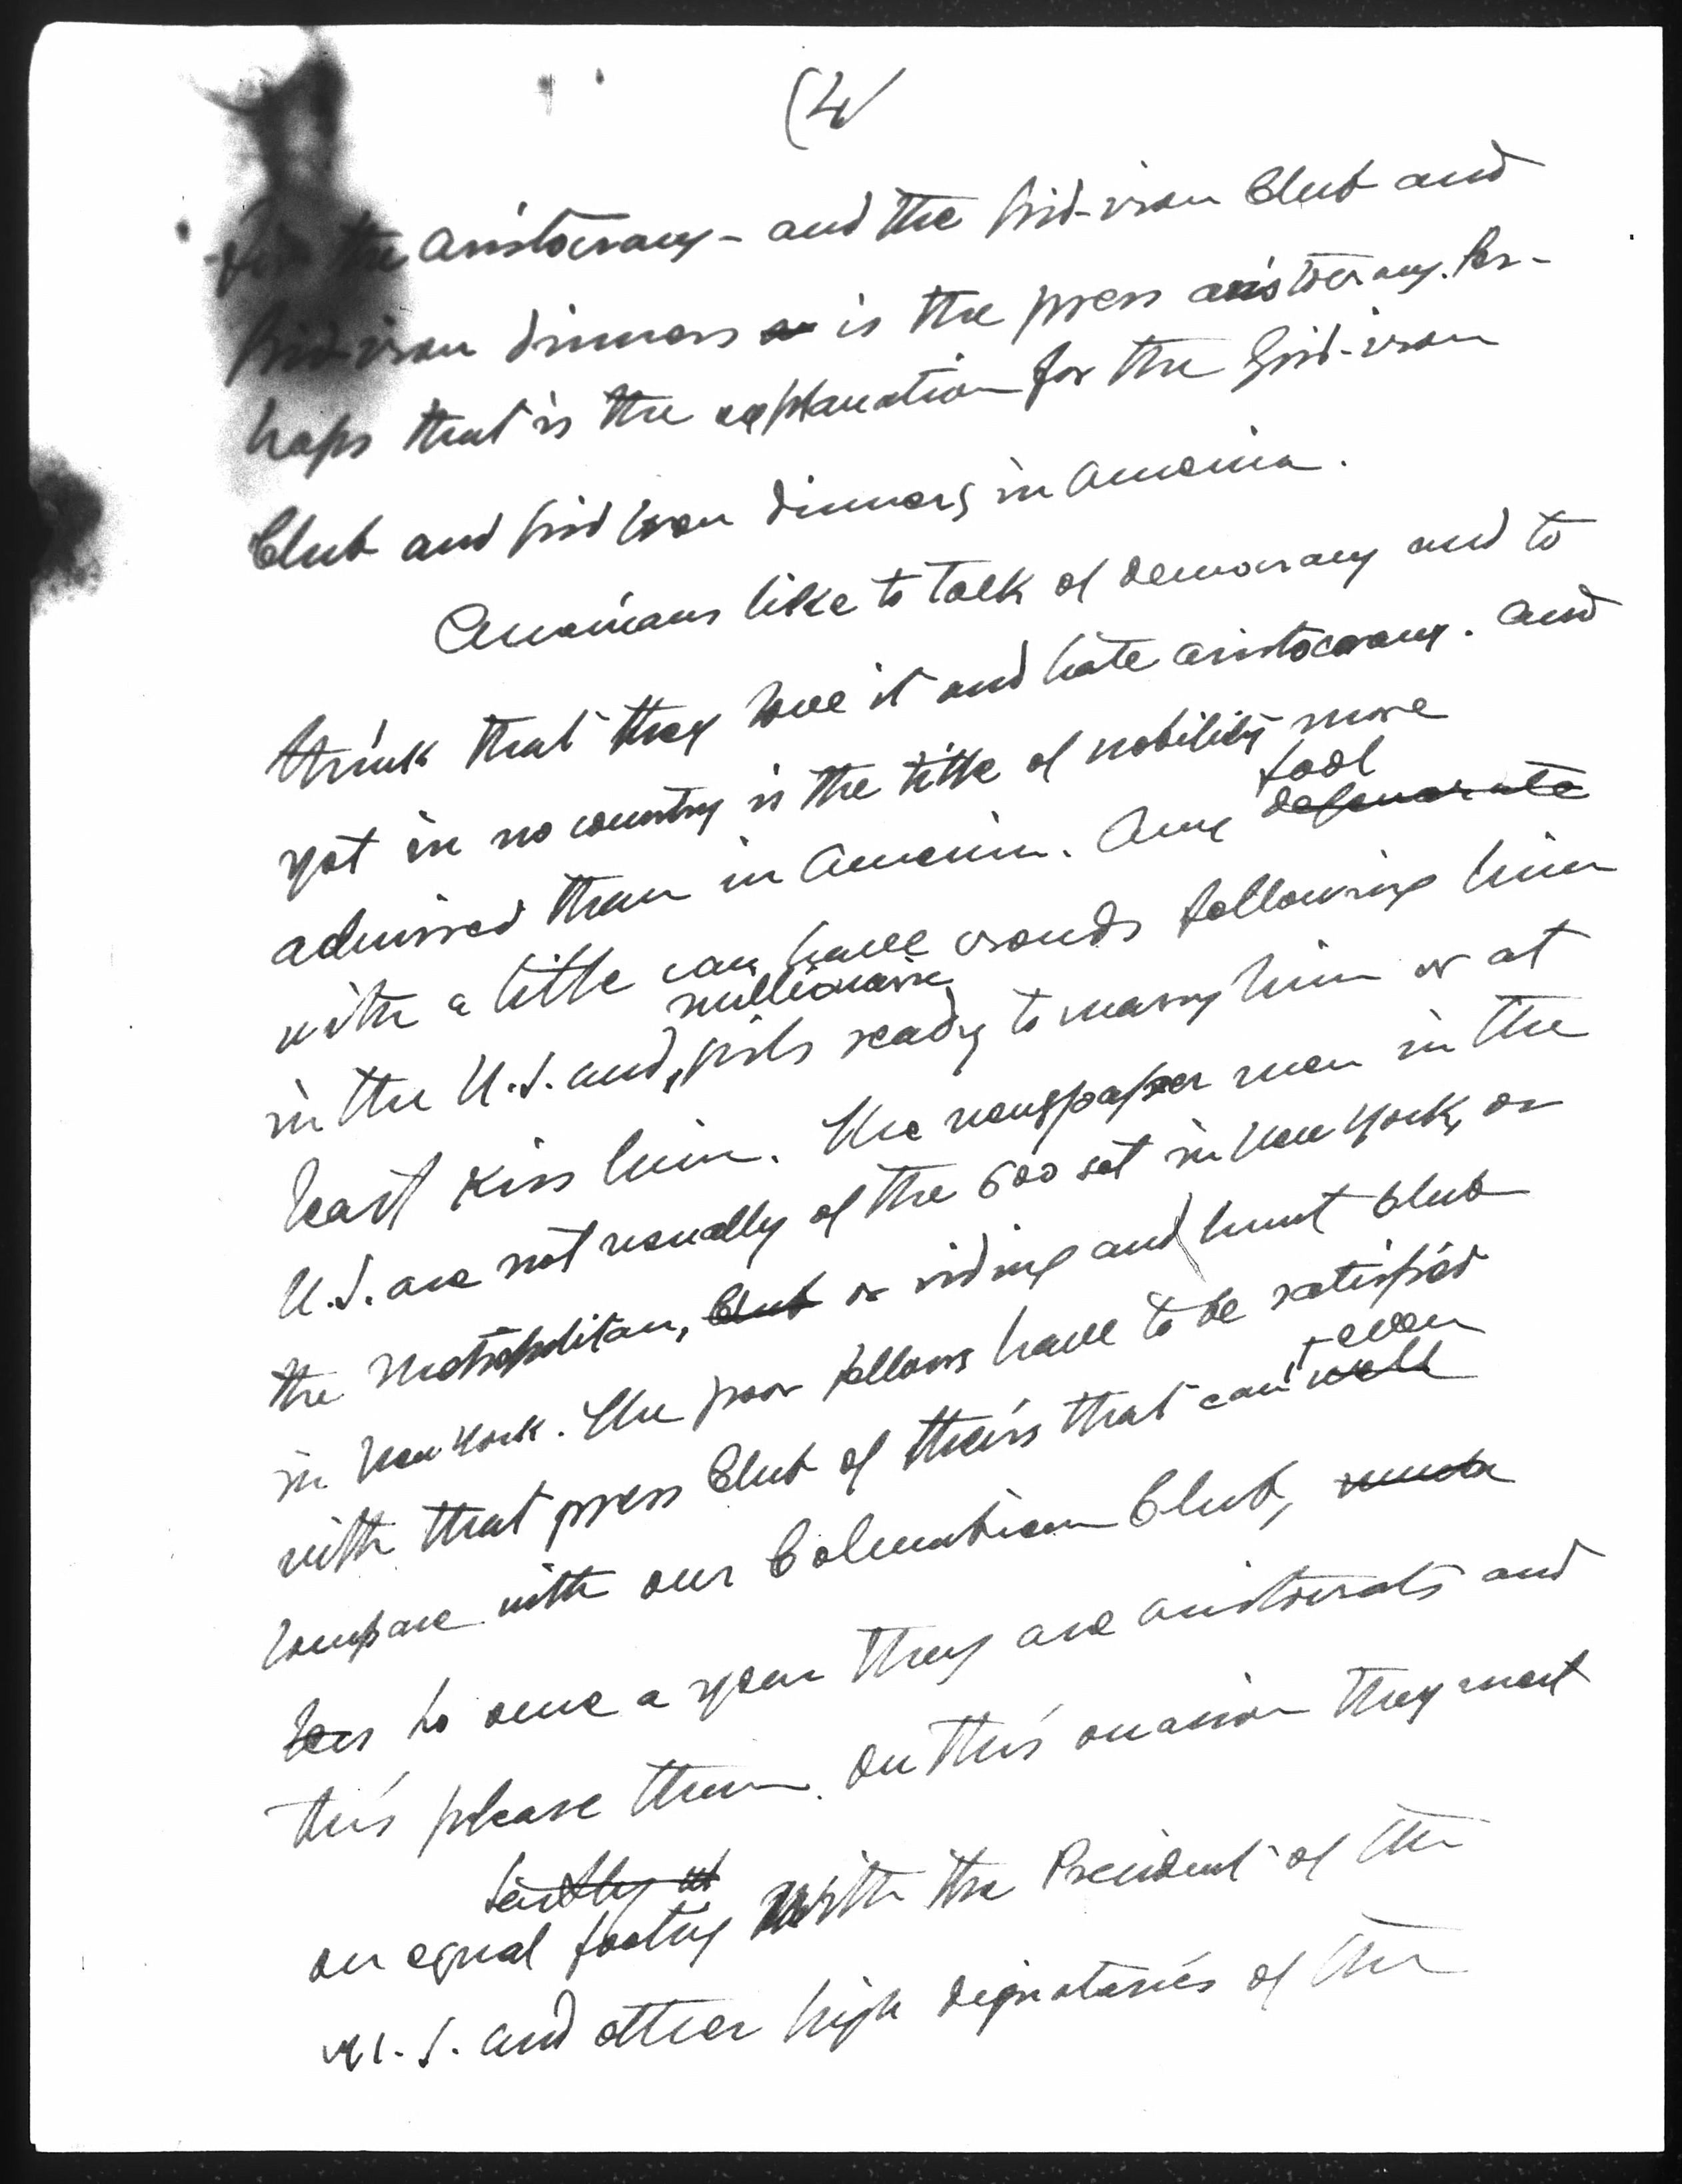 (4)
the aristocracy - and the Grid-iron Club and
Grid-iron dinners is the press aristocracy. Per-
haps that is the explanation for the Grid-iron
Club and Grid iron dinners in America.
Americans like to talk of democracy and to
think that they love it and hate aristocracy. And
yet in no country is the title of nobility more
admired than in America. Any fool degenerate
with a title can have crowds following him
in the U.S. and millionaire girls ready to marry him or at
least kiss him. The newspaper men in the
U.S. are not usually of the 600 set in New York, or
the Metropolitan, Club or riding and hunt club
in New York. The poor fellows have to be satisfied
with that press Club of theirs that can't even well
compare with our Columbian Club,
so once a year they are aristocrats and
this please them. On this occasion they meet
on equal footing with the President of the
U.S. and other high dignataries of the